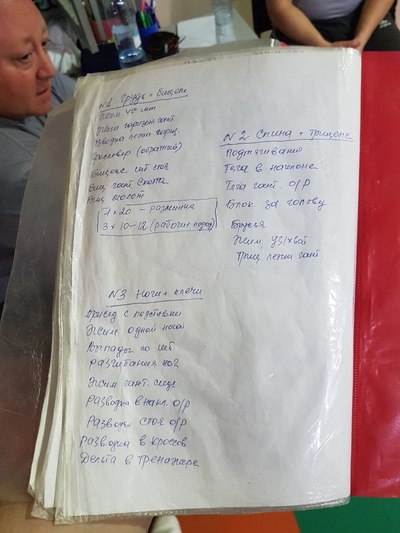 N1 Грудь + бицепс
Жим 45° шт
Жим горизонт гант
Вводка лежа гориз.
Кроссовер (обратный)
Бицепс шт стоя
Биц гант Скотта
Биц молот
1 × 20 – разминка
3 × 10-12 (рабочие подход)
N2 Спина + трицепс
Подтягивание
Тяга в наклоне
Тяга гант. О/Р
Блок за голову
Брусья
Жим УЗ/хват
Триц лежа гант
N3 Ноги + плечи
Присед с подставки
Жим одной ногой
Выпады со шт
Разгибания ног
Жим гант. сидя
Разводка в накл. О/Р
Разводки стоя О/Р
Разводка в кроссов
Дельта в тренажере